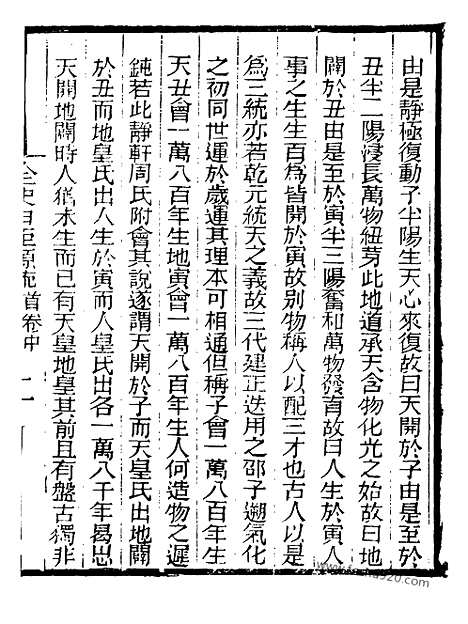 由是靜極復動子半陽生天心來復故曰天開於子由是至於
丑半二陽浸長萬物紐芽此地道承天含物化光之始故曰地
闢於丑由是至於寅半三陽奮和萬物發育故曰人生於寅人
事之生生百為皆開於寅故別物稱人以配三才也古人以是
為三統亦若乾元統天之義故三代建正迭用之邵子遡氣化
之初同世運於歲運其理本可相通但稱子會一萬八百年生
天丑會一萬八百年生地寅會一萬八百年生人何造物之遲
鈍若此靜軒周氏附會其說遂謂天開於子而天皇氏出地闢
於丑而地皇氏出人生於寅而人皇氏出各一萬八千年曷思
天開地闢時人猶未生而已有天皇地皇其前且有盤古獨非
首卷中